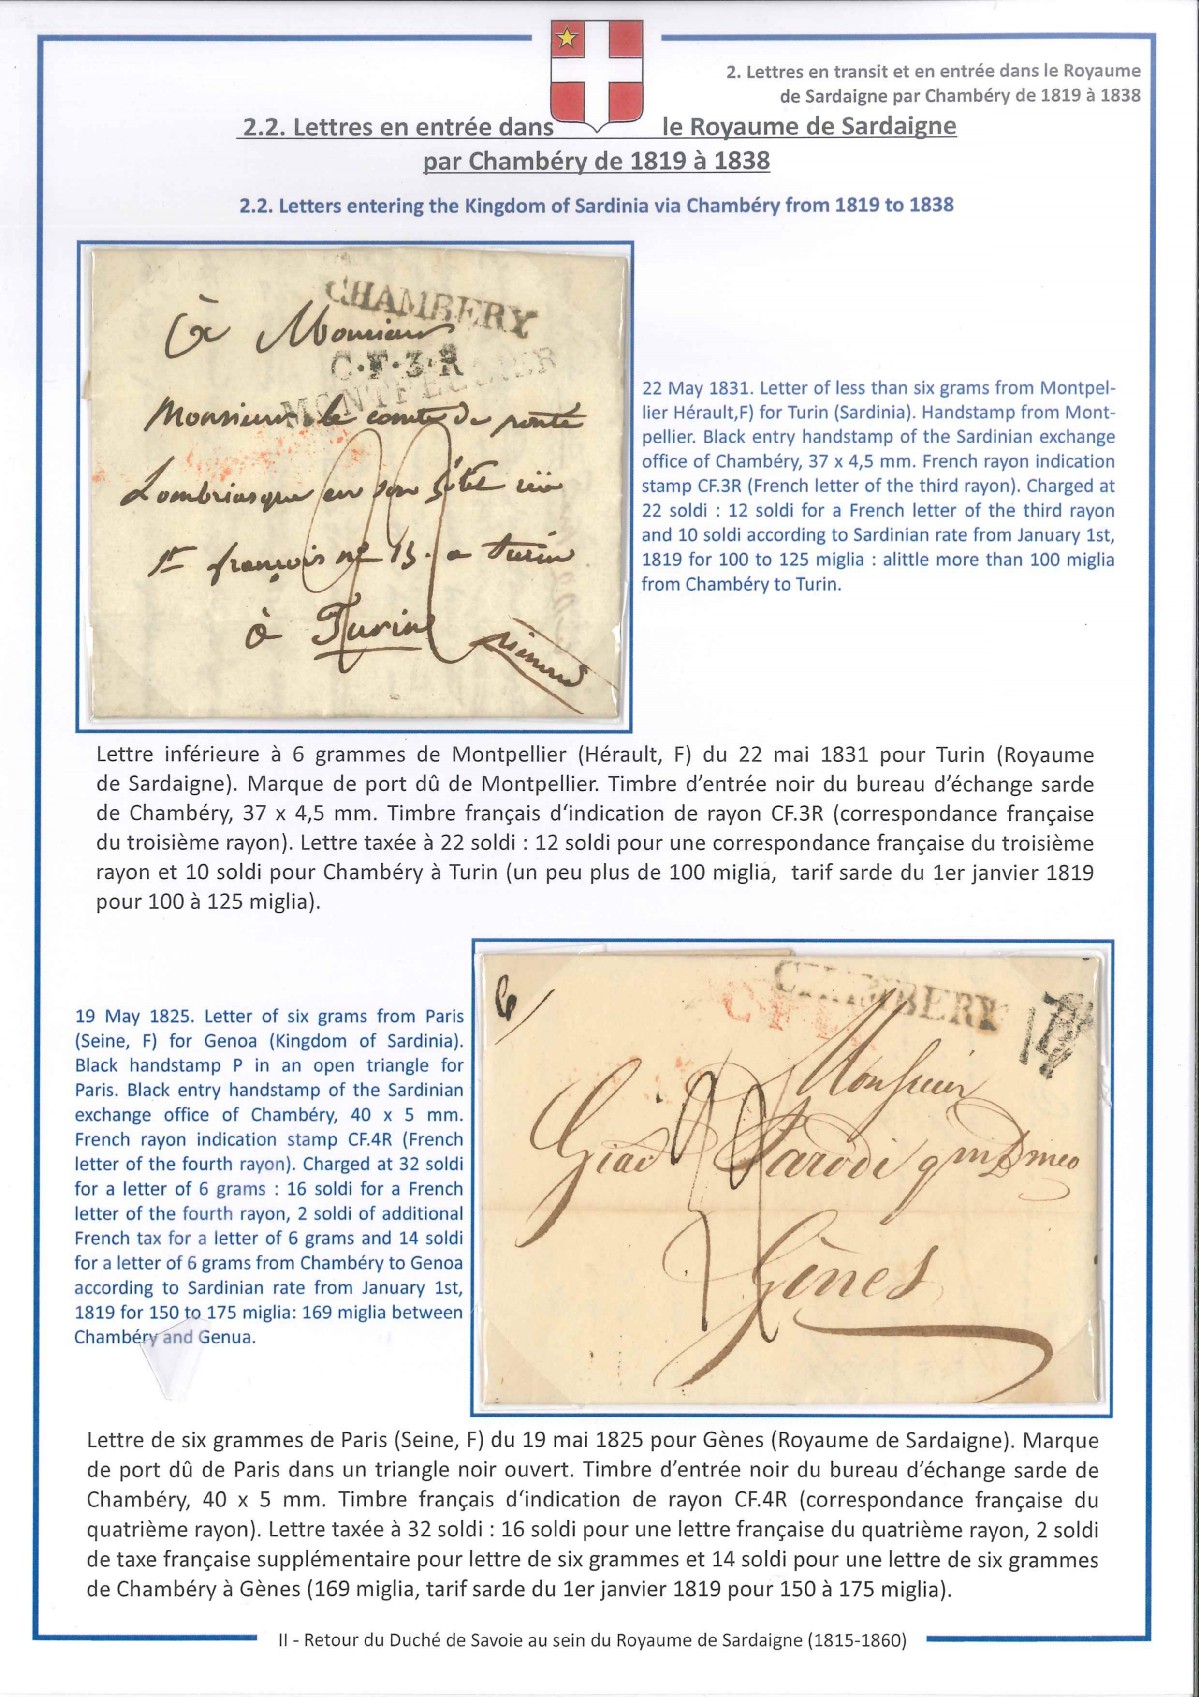 2. Lettres en transit et en entrée dans le Royaume
de Sardaigne par Chambéry de 1819 à 1838
2.2. Lettres en entrée dans le Royaume de Sardaigne
par Chambéry de 1819 à 1838
2.2. Letters entering the Kingdom of Sardinia via Chambéry from 1819 to 1838
CHAMBERY
à Monsieur
C.F.3.R
MONTPELLIER
Monsieur le comte de
en son
st françois nº 13. a turin
à Turin
22 May 1831. Letter of less than six grams from Montpel-
lier Hérault,F) for Turin (Sardinia). Handstamp from Mont-
pellier. Black entry handstamp of the Sardinian exchange
office of Chambéry, 37 x 4,5 mm. French rayon indication
stamp CF.3R (French letter of the third rayon). Charged at
22 soldi : 12 soldi for a French letter of the third rayon
and 10 soldi according to Sardinian rate from January 1st,
1819 for 100 to 125 miglia : alittle more than 100 miglia
from Chambéry to Turin.
Lettre inférieure à 6 grammes de Montpellier (Hérault, F) du 22 mai 1831 pour Turin (Royaume
de Sardaigne). Marque de port dû de Montpellier. Timbre d’entrée noir du bureau d’échange sarde
de Chambéry, 37 x 4,5 mm. Timbre français d‘indication de rayon CF.3R (correspondance française
du troisième rayon). Lettre taxée à 22 soldi : 12 soldi pour une correspondance française du troisième
rayon et 10 soldi pour Chambéry à Turin (un peu plus de 100 miglia, tarif sarde du 1er janvier 1819
pour 100 à 125 miglia).
19 May 1825. Letter of six grams from Paris
(Seine, F) for Genoa (Kingdom of Sardinia).
Black handstamp P in an open triangle for
Paris. Black entry handstamp of the Sardinian
exchange office of Chambéry, 40 x 5 mm.
French rayon indication stamp CF.4R (French
letter of the fourth rayon). Charged at 32 soldi
for a letter of 6 grams : 16 soldi for a French
letter of the fourth rayon, 2 soldi of additional
French tax for a letter of 6 grams and 14 soldi
for a letter of 6 grams from Chambéry to Genoa
according to Sardinian rate from January 1st,
1819 for 150 to 175 miglia: 169 miglia between
Chambéry and Genua.
CHAMBERY
P
Monsieur
Giac Parodi qm Dmeo
Gènes
Lettre de six grammes de Paris (Seine, F) du 19 mai 1825 pour Gènes (Royaume de Sardaigne). Marque
de port dû de Paris dans un triangle noir ouvert. Timbre d’entrée noir du bureau d’échange sarde de
Chambéry, 40 x 5 mm. Timbre français d‘indication de rayon CF.4R (correspondance française du
quatrième rayon). Lettre taxée à 32 soldi : 16 soldi pour une lettre française du quatrième rayon, 2 soldi
de taxe française supplémentaire pour lettre de six grammes et 14 soldi pour une lettre de six grammes
de Chambéry à Gènes (169 miglia, tarif sarde du 1er janvier 1819 pour 150 à 175 miglia).
II - Retour du Duché de Savoie au sein du Royaume de Sardaigne (1815-1860)